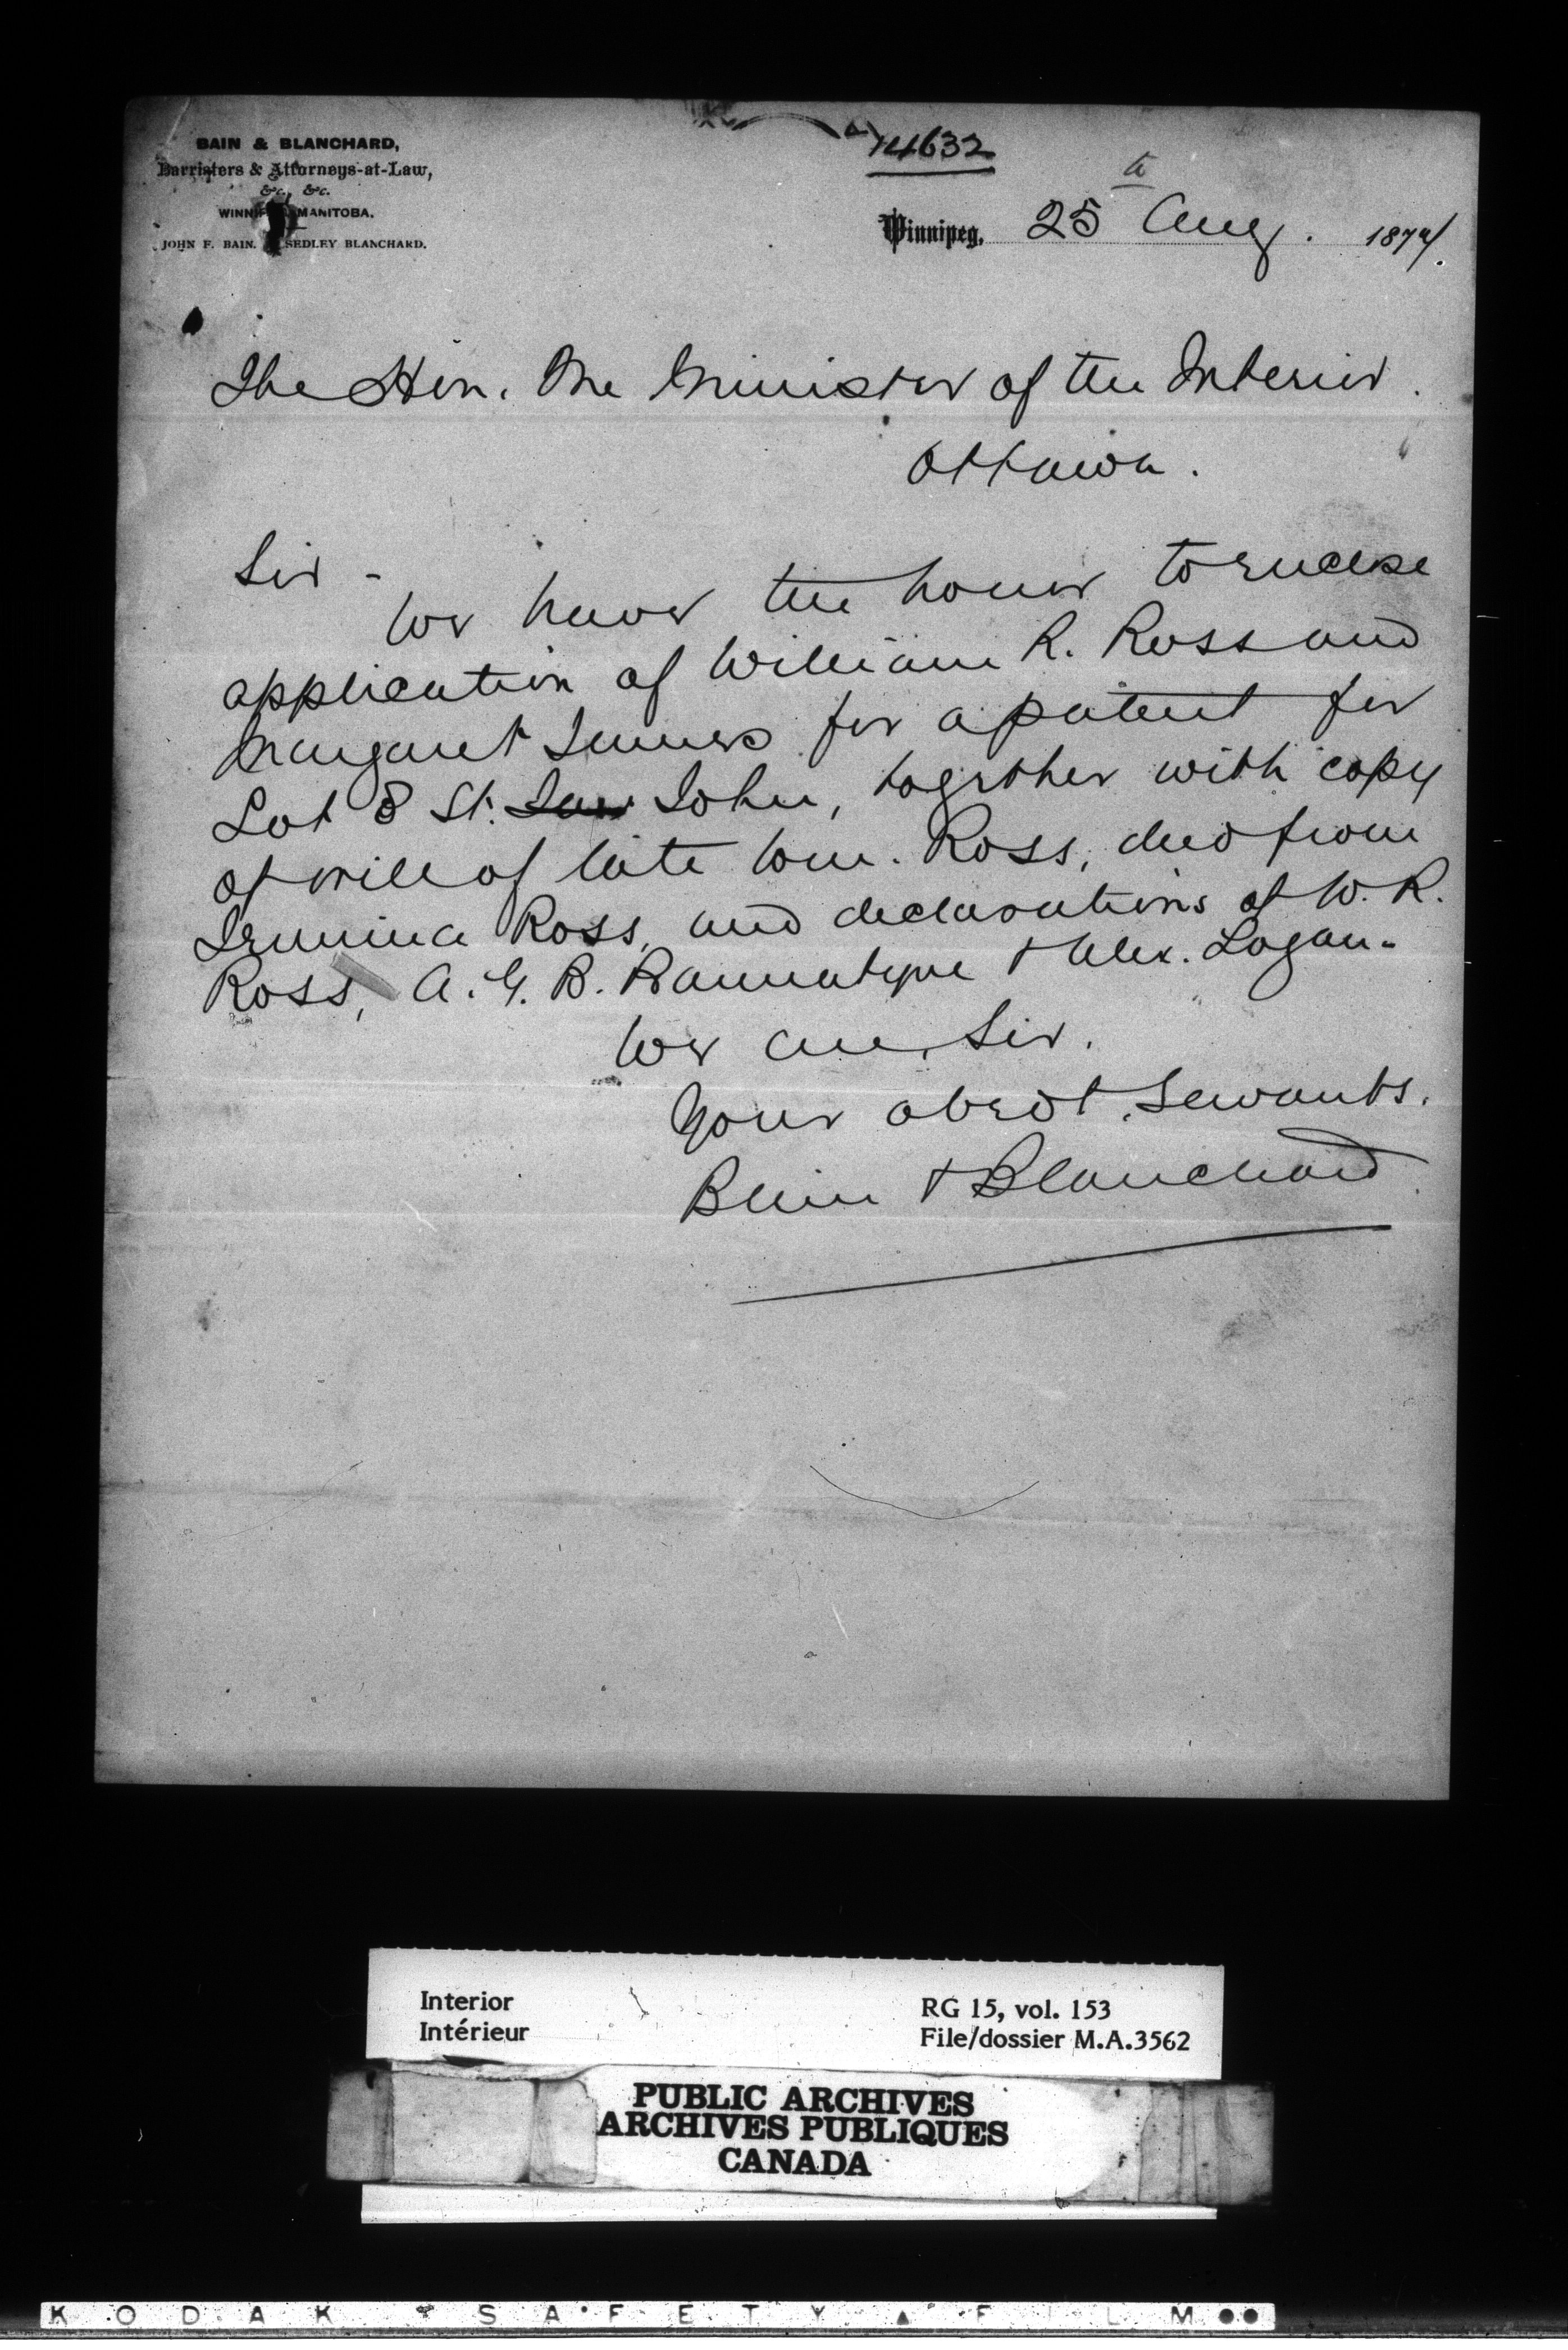 BAIN & BLANCHARD,
Barristers & Attorneys-at-Law,
&c., &c.
MANITOBA.
JOHN F. BAIN. SEDLEY BLANCHARD.
14632
Winnipeg, 25th Aug. 1874.
The Hon. The Minister of the Interior.
Ottawa.
Sir -
We have the honor to enclose
application of William R. Ross and
Margaret James for a patent for
Lot 8 St. John, together with copy
of will of late Wm. Ross, deed from
Jemima Ross, and declarations of W. R.
Ross, A. G. B. Bannatyne & Alex. Logan -
We are, Sir.
Your obedt. Servants.
Bain & Blanchard
Interior
Intérieur
RG 15, vol. 153
File/dossier M.A.3562
PUBLIC ARCHIVES
ARCHIVES PUBLIQUES
CANADA
KODAK SAFETY FILM